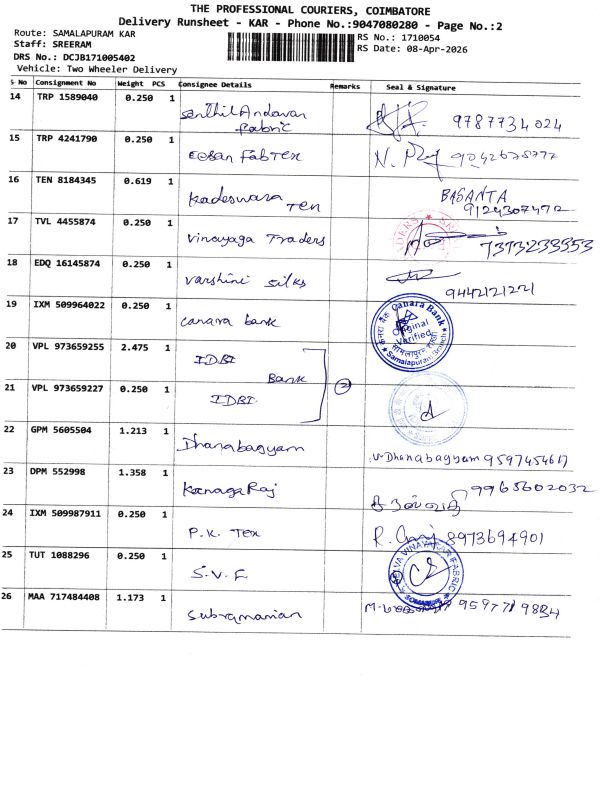 THE PROFESSIONAL COURIERS, COIMBATORE
Delivery Runsheet - KAR - Phone No.:9047080280 - Page No.:2
Route: SAMALAPURAM KAR
Staff: SREERAM
DRS No.: DCJB171005402
Vehicle: Two Wheeler Delivery
RS No.: 1710054
RS Date: 08-Apr-2026
S No Consignment No Weight PCS Consignee Details Remarks Seal & Signature
14 TRP 1589040 0.250 1 Senthil Andavan Fabric 9787734024
15 TRP 4241790 0.250 1 Eesan FabTex
16 TEN 8184345 0.619 1 Kadeswara Tex BASANTA 9124307472
17 TVL 4455874 0.250 1 Vinayaga Traders 7373233353
18 EDQ 16145874 0.250 1 Varshini Silks 9442121221
19 IXM 509964022 0.250 1 Canara bank Canara Bank Original Verified Samalapuram Branch
20 VPL 973659255 2.475 1 IDBI Bank 2
21 VPL 973659227 0.250 1 IDBI
22 GPM 5605504 1.213 1 Dhanabagyam V. Dhanabagyam 9597454617
23 DPM 552998 1.358 1 KanagaRaj 9965602032
24 IXM 509987911 0.250 1 P.K. Tex 8973694901
25 TUT 1088296 0.250 1 S.V.F
26 MAA 717484408 1.173 1 Subramanian